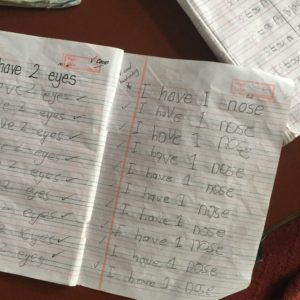 have 2 eyes
ave 2 eyes
ve 2 eyes
e 2 eyes
2 eyes
2 eyes
2 eyes
2 eyes
2 eyes
eyes
I have 1 nose
I have 1 nose
I have 1 nose
I have 1 nose
I have 1 nose
I have 1 nose
I have 1 nose
I have 1 nose
I have 1 nose
I have 1 nose